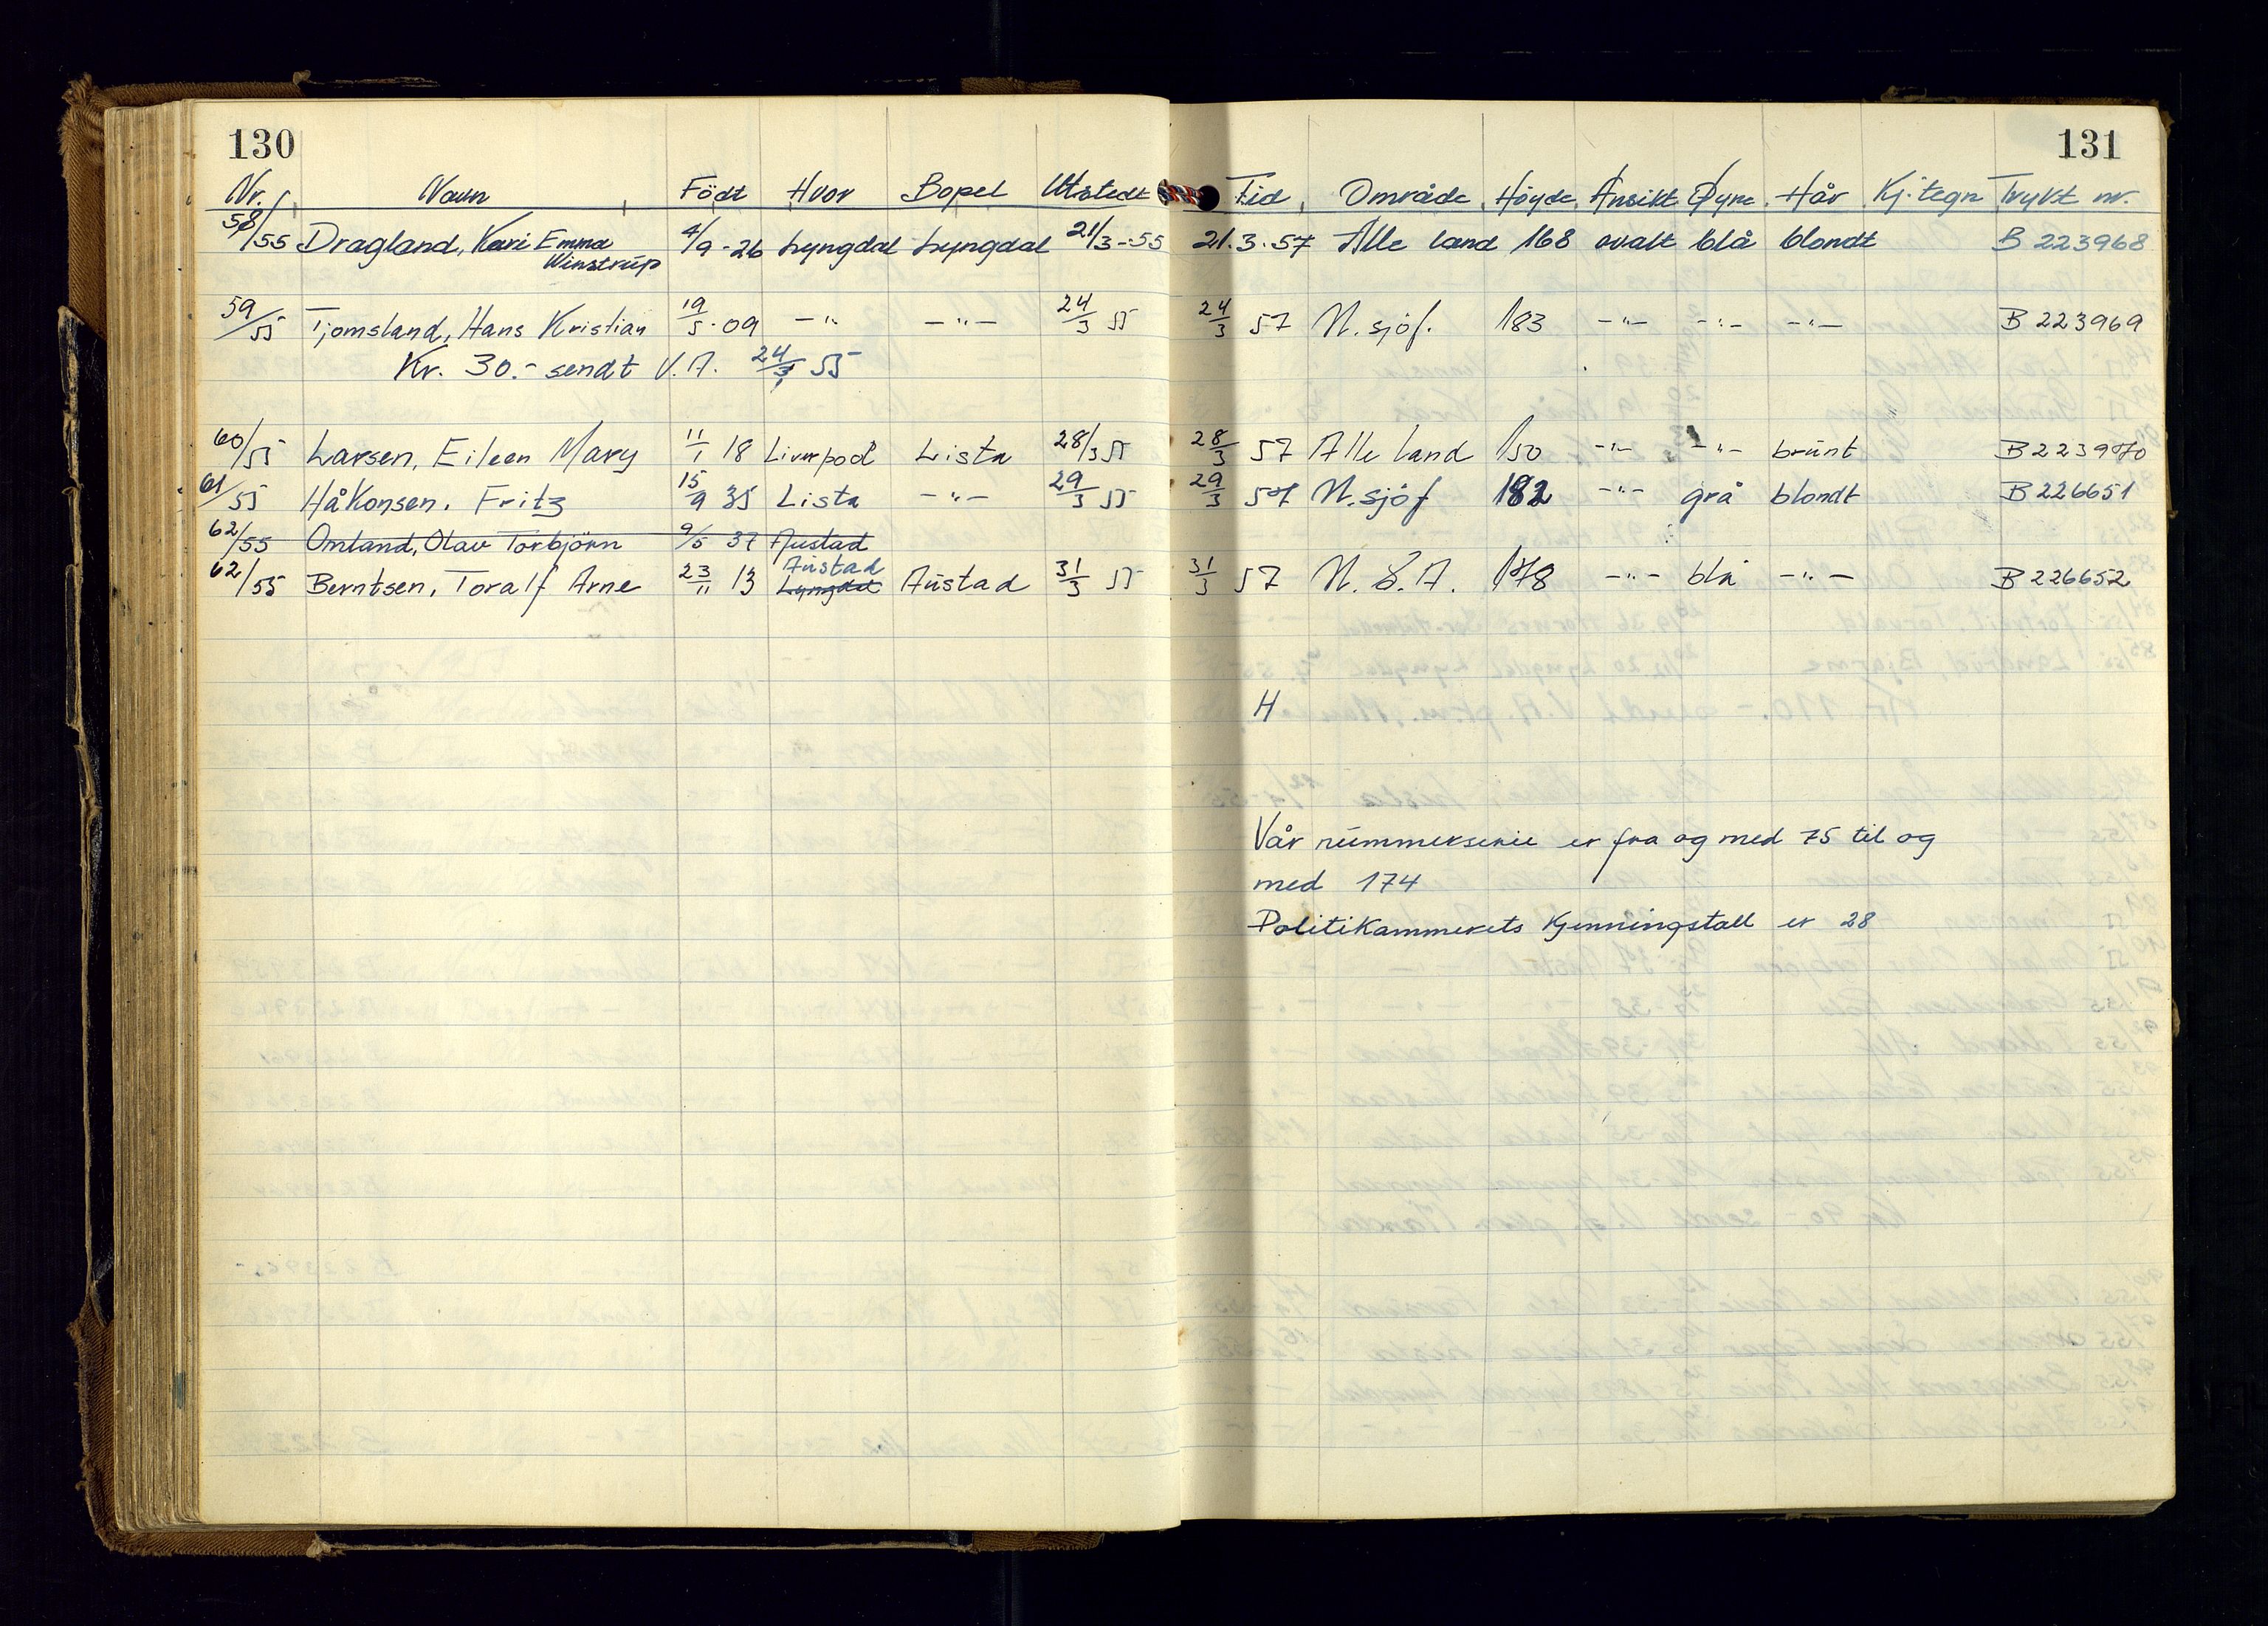 130
131
Nr. Navn Födt Hvor Bopel Utstedt Tid Område Höyde Ansikt Øyne Hår Kj.tegn Trykt nr.
58/55 Dragland, Kari Emma 4/9-26 Lyngdal Lyngdal 21/3-55 21.3.57 Alle land 168 ovalt blå blondt B 223968
Winstrup
59/55 Tjomsland, Hans Kristian 19/5-09 -"- -"- 24/3 55 24/3 57 N.sjöf. 183 -"- -"- -"- B 223969
Kr. 30.- sendt V.A. 24/3 55
60/55 Larsen, Eileen Mary 11/1 18 Liverpool Lista 28/3 55 28/3 57 Alle land 150 -"- -"- brunt B 223970
61/55 Håkonsen, Fritz 15/9 35 Lista -"- 29/3 55 29/3 57 N.sjöf 182 -"- grå blondt B 226651
62/55 Omland, Olav Torbjörn 9/5 37 Austad
Austad
62/55 Berntsen, Toralf Arne 23/11 13 Lyngdal Austad 31/3 55 31/3 57 N.S.A. 178 -"- blå -"- B 226652
H
Vår nummerserie er fra og med 75 til og
med 174
Politikammerets kjenningstall er 28